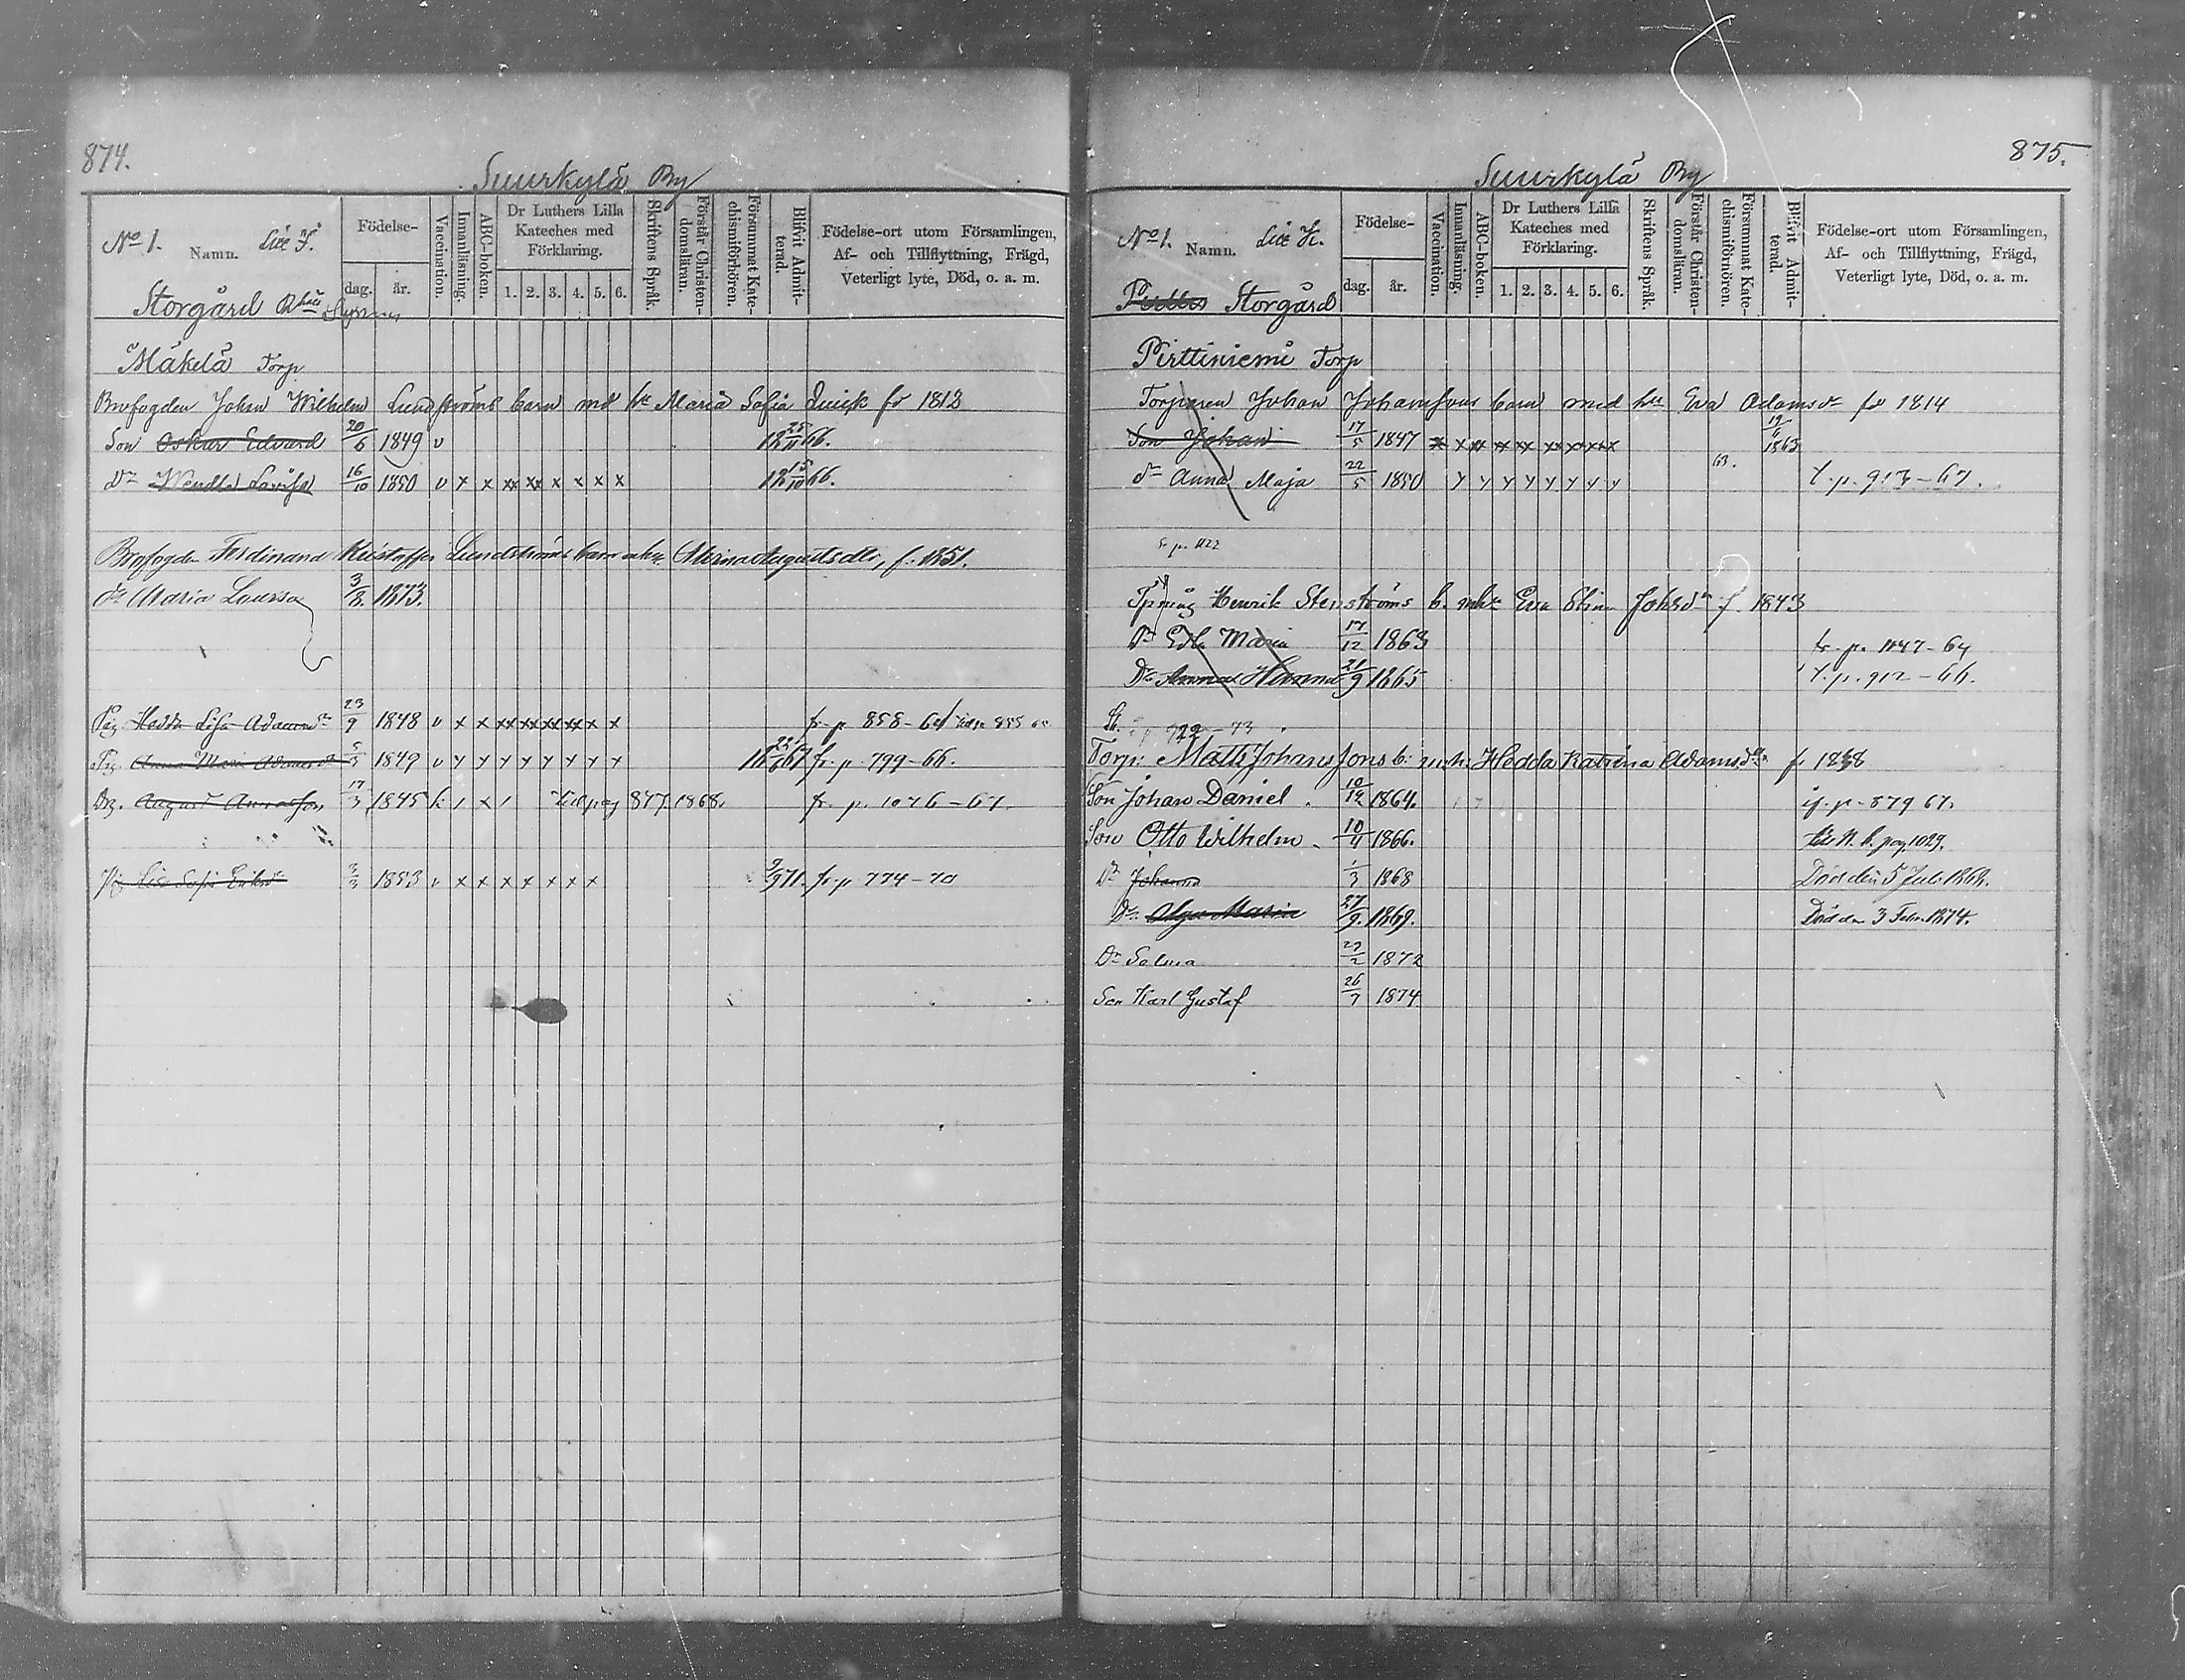 874.
Suurkylä By
No 1. Namn. Litt F.
Födelse-
dag. år.
Vaccination.
Innanläsning.
ABC-boken.
Dr Luthers Lilla Kateches med Förklaring.
1. 2. 3. 4. 5. 6.
Skriftens Språk.
Förstår Christendomsläran.
Försummat Katechismiförhören.
Blifvit Admitterad.
Födelse-ort utom Församlingen,
Af- och Tillflyttning, Frägd,
Veterligt lyte, Död, o. a. m.
Storgård
Mäkelä Torp
Brofogden Johan Wilhelm Lundströms barn md Maria Sofia Quick fö 1812
Son Oskar Edvard 20/6 1849 v 25/11 66.
Dr Wendla Lovisa 16/10 1850 v x x xx xx x x x x 66.
Brofogden Ferdinand Kristoffer Lundströms barn Augustsdtr, f. 1851.
dr Maria Lovisa 3/8. 1873.
Pig. Hedda Lisa Adamsdr 23/9 1848 v x x xx xx xx xx x x fr. p 858-64
Pig. Anna Maria Adamsdr 5/3 1849 v y y y y y y y y fr. p. 799-66.
Drg. August 17/3 1845 x till pag 877. 1868. fr. p. 1076-67.
Pig Sofia Eriksdr 1853 v x x x x x x x 71. fr. p 774-70
875.
Suurkylä By
No 1. Namn. Litt
Födelse-
dag. år.
Vaccination.
Innanläsning.
ABC-boken.
Dr Luthers Lilla Kateches med Förklaring.
1. 2. 3. 4. 5. 6.
Skriftens Språk.
Förstår Christendomsläran.
Försummat Katechismiförhören.
Blifvit Admitterad.
Födelse-ort utom Församlingen,
Af- och Tillflyttning, Frägd,
Veterligt lyte, Död, o. a. m.
Storgård
Pirttiniemi Torp
Torparen Johan Johanssons barn med hu Eva Adamsdr fö 1814
Son Johan 17/5 1847 x x x xx xx xx x x x 1863
dr Anna Maja 22/5 1850 y y y y y y y y 63. t. p. 913-67.
fr p. 1122
Henrik Stenströms b. mhu Eva Stina Johsdr f. 1843
Dr Maria 17/12 1863 fr. p. 1047-64
Dr 21/9 1865 t. p. 912-66.
922-73
Torp: Matts Johanssons b: m.h. Hedda Katrina Adamsdr f. 1838
Son Johan Daniel 10/12 1864. p. 879 67.
Son Otto Wilhelm 10/4 1866. pag. 1029.
Dr Johanna 1/3 1868 Död den 5 Juli 1868.
Dr Olga Maria 27/9. 1869. Död den 3 Febr. 1874.
Dr Selma 29/2 1872
Son Karl Gustaf 26/7 1874